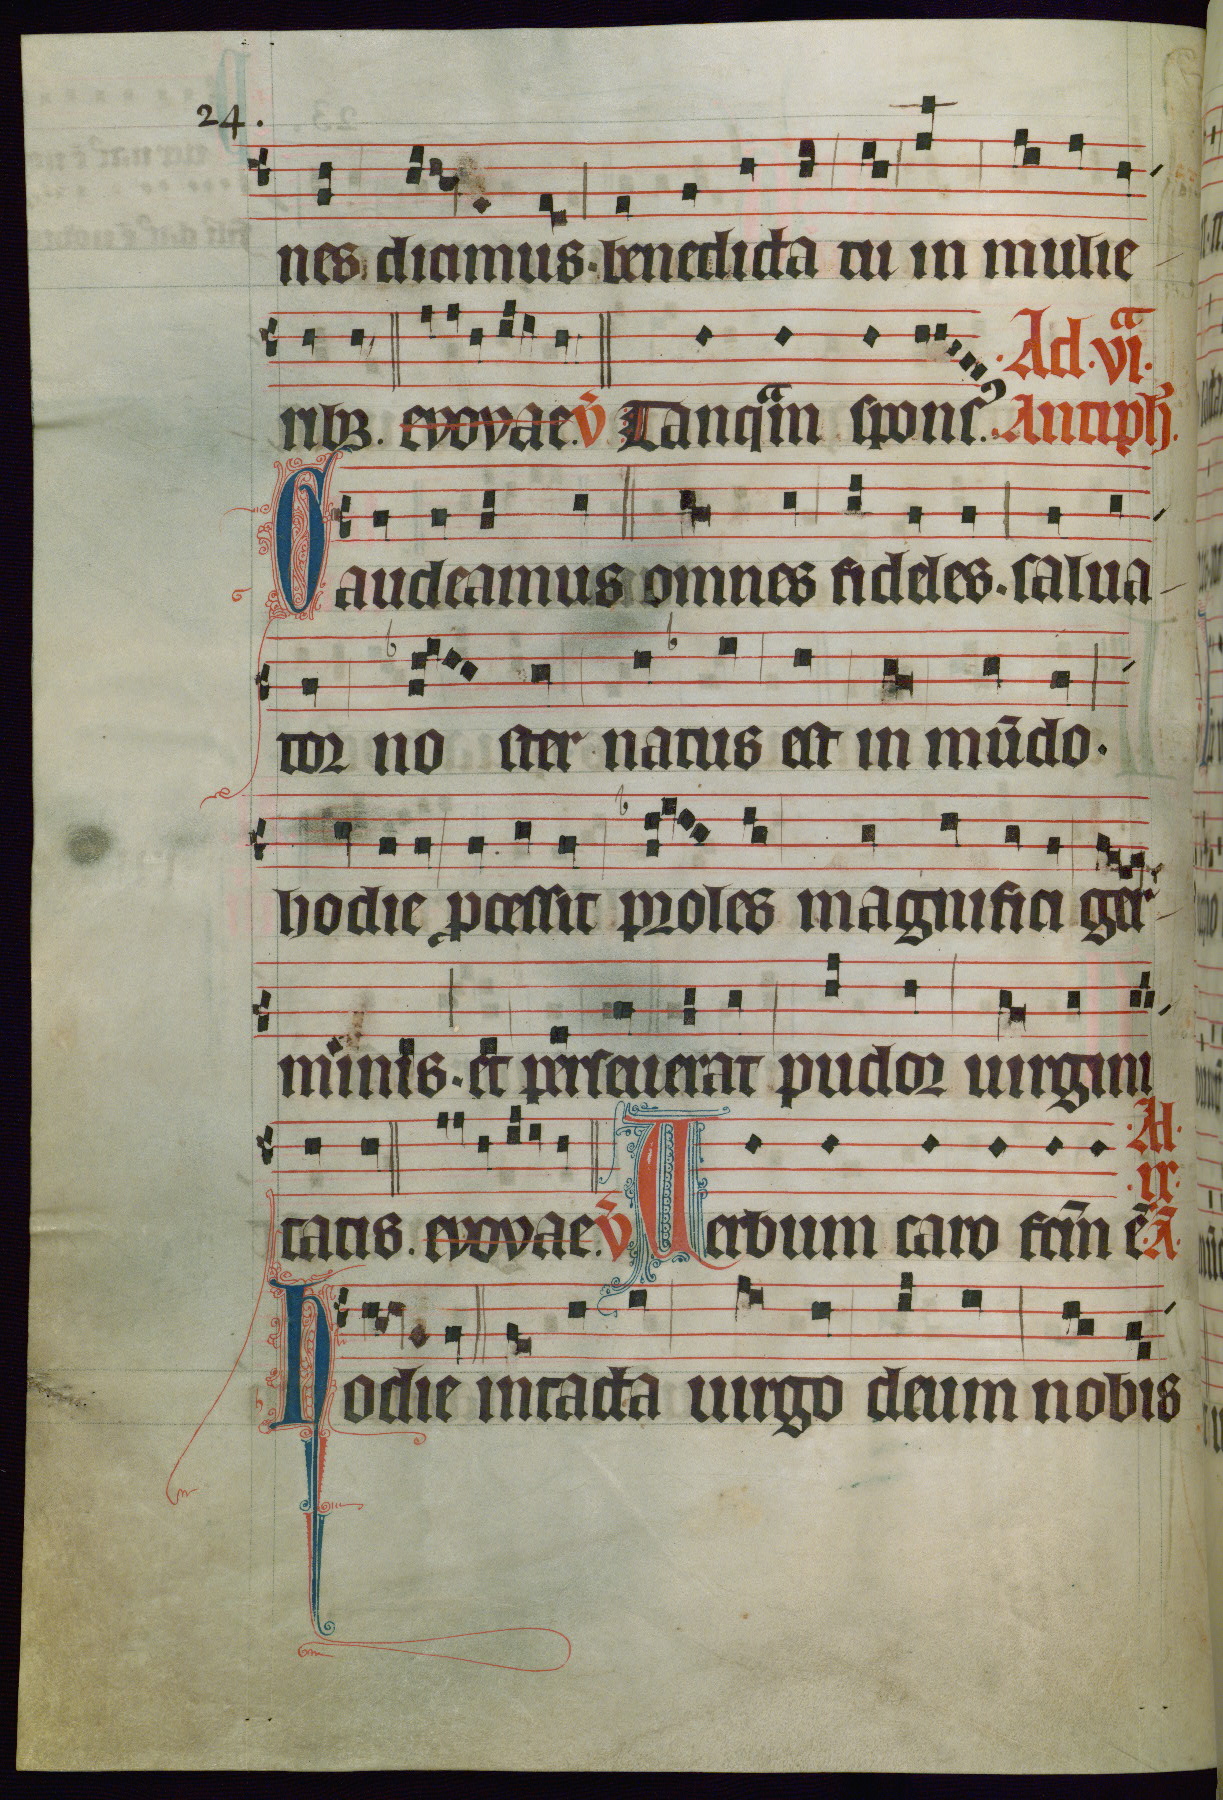 24.
nes. dicimus. benedicta tu in mulie-
ribꝫ. evovae. v̄ Tanqᵃm sponsꝰ. Ad. vıᵃ. Antiph̄.
Gaudeamus omnes fideles. salua-
tor no ster natus est in mūdo.
hodie ꝓcessit proles magnifici ger-
minis. et perseuerat pudor uirgini
tatis. evovae. v̄ Uerbum caro fcm̄ ē Ad. ix. ā.
Hodie intacta uirgo deum nobis